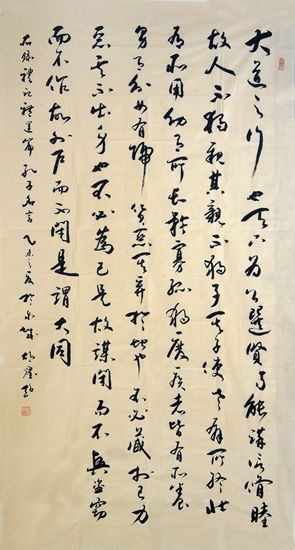 大道之行也天下為公選賢与能講信脩睦
故人不獨親其親不獨子其子使老有所終壯
有所用幼有所長矜寡孤獨廢疾者皆有所養
男有分女有歸貨惡其棄於地也不必藏於己力
惡其不出於身也不必為己是故謀閉而不興盜竊
而不作故外户而不閉是謂大同
右録禮記禮運篇 孔子名言 乙未之夏於